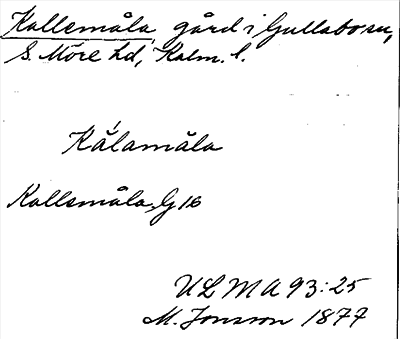 Kallemåla, gård i Gullabo sn,
S. Möre hd, Kalm. l.
Kálamåla
Kallsmåla, G 16
ULMA 93:25
M. Jonsson 1877